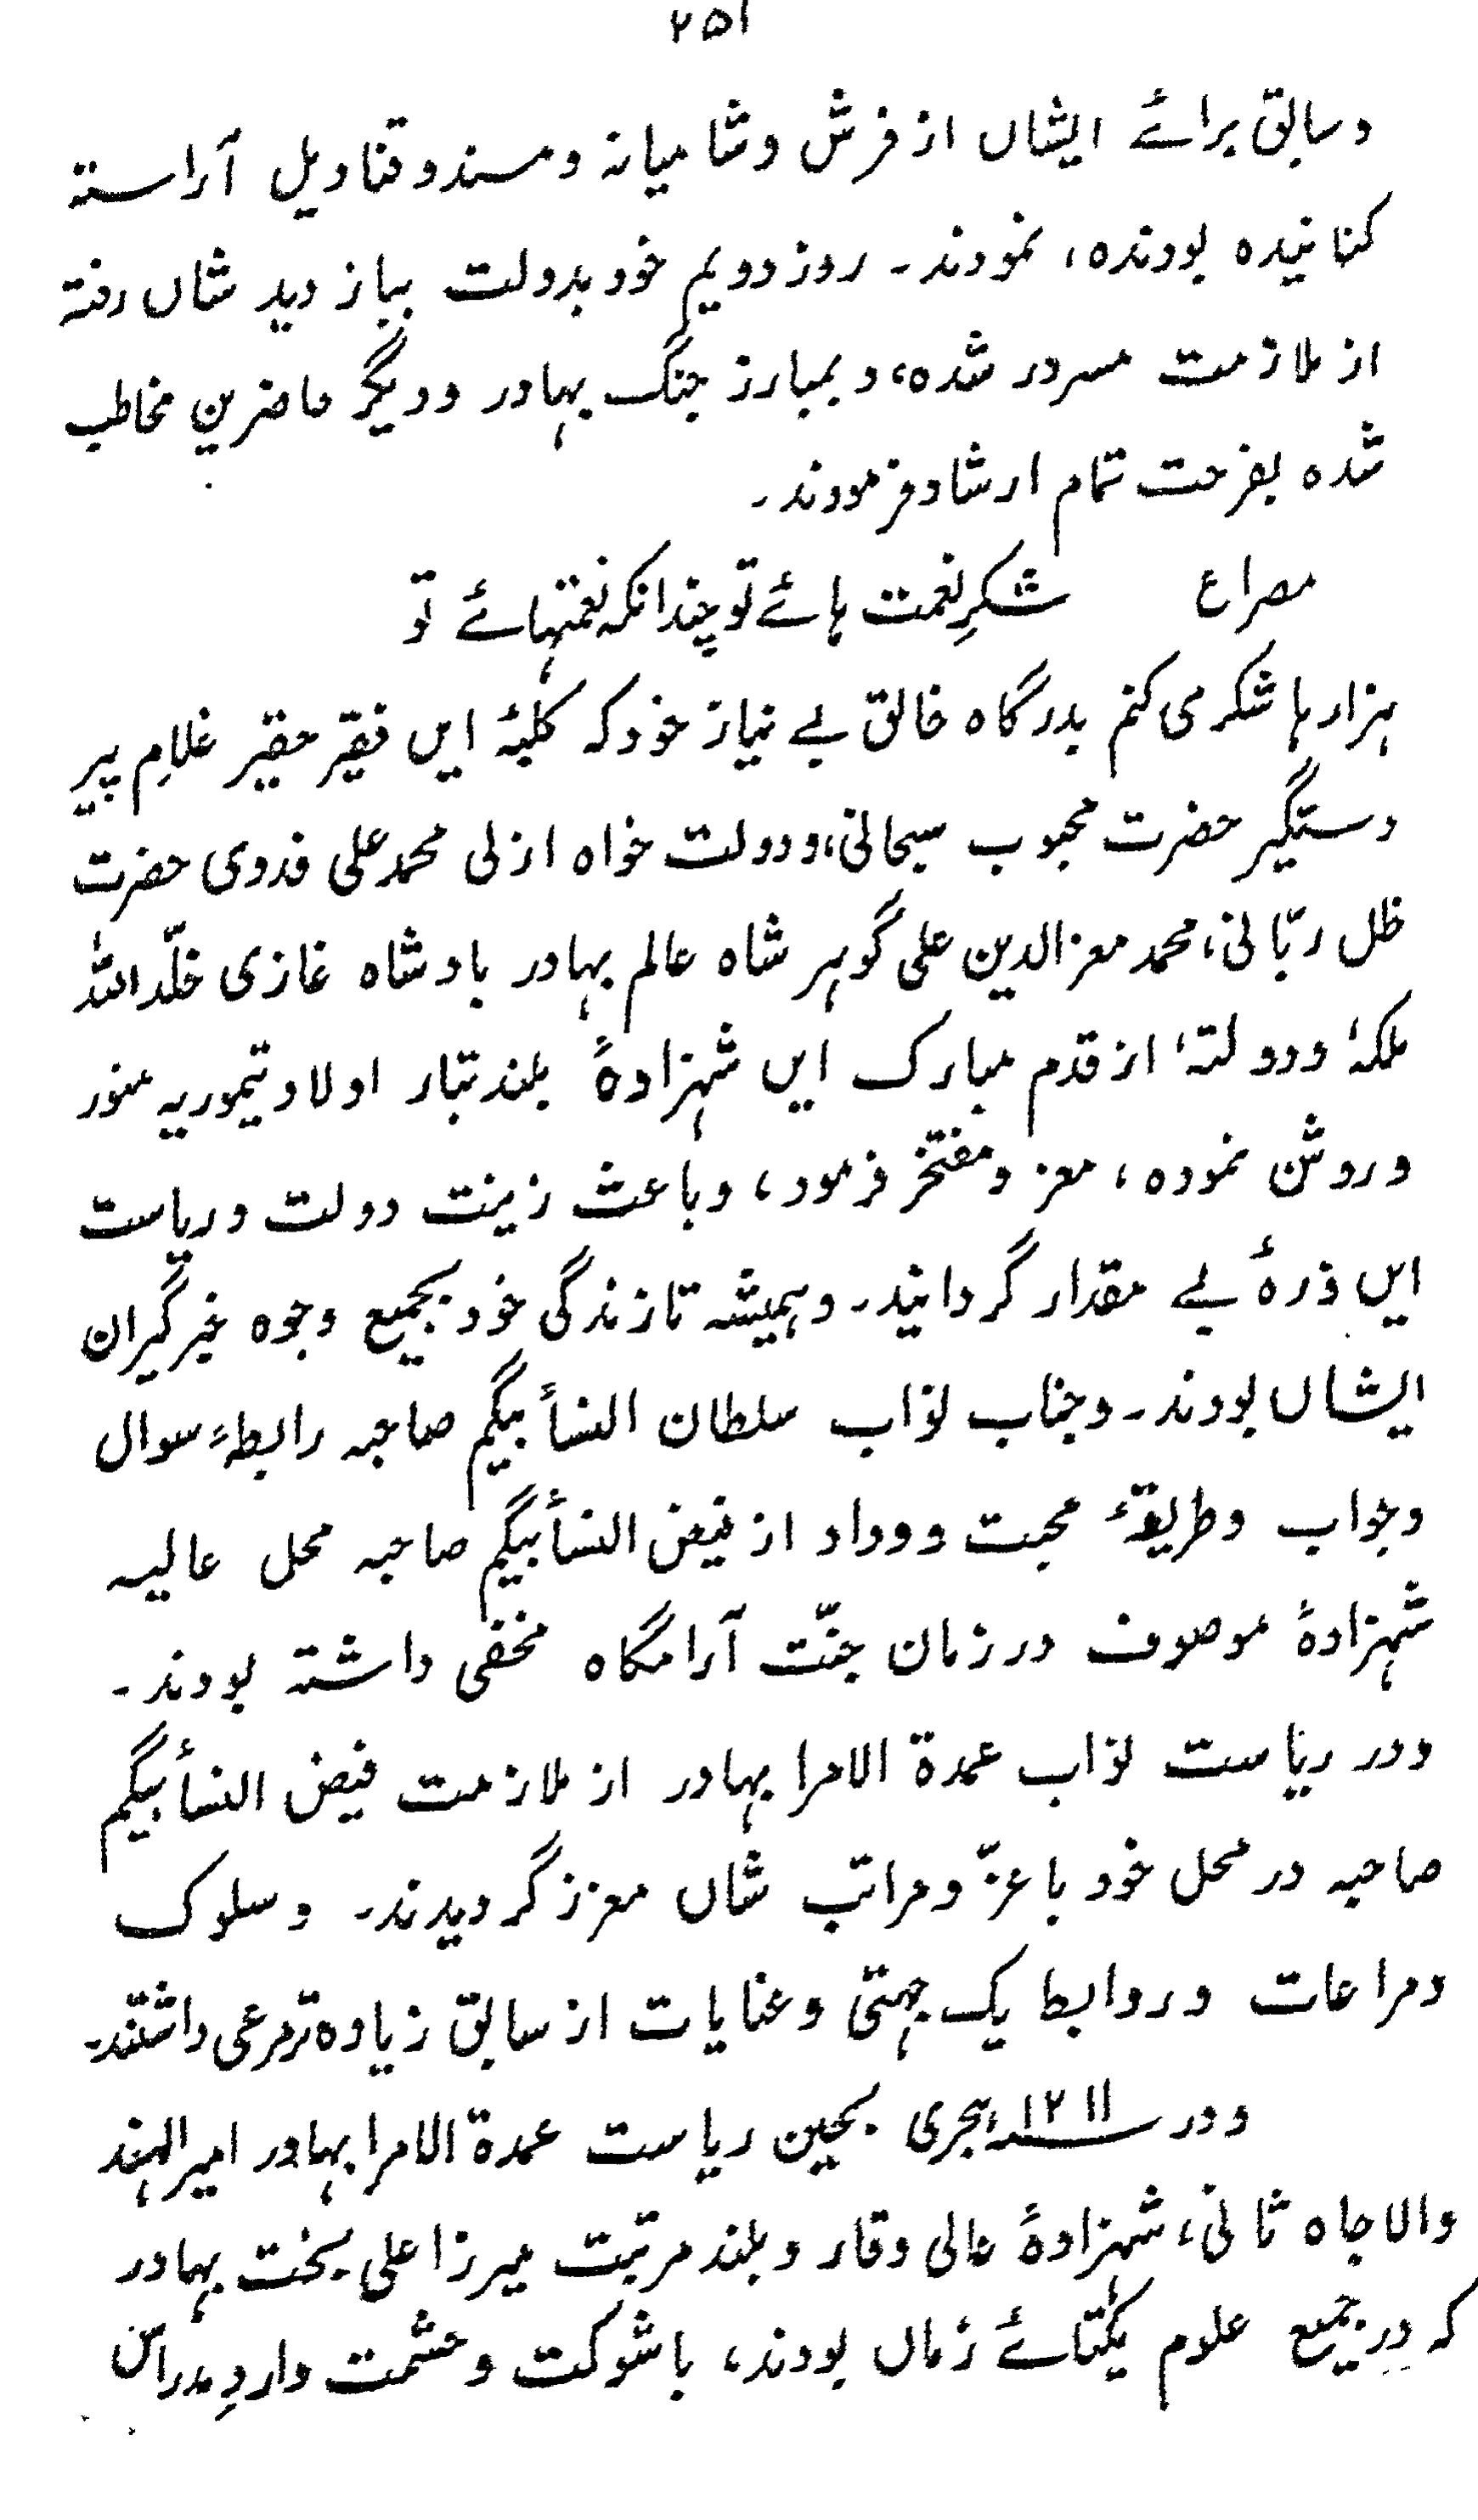 ۲۵۱
وسابق برائے ایشاں از فرش وشامیانہ ومسند وقنادیل آراستہ
کنانیدہ بودندہ، نمودند۔ روز دویم خود بدولت بباز دید شاں رفتہ
از ملازمت مسرور شدہ، و بمبارز جنگ بہادر و دیگر حاضرین مخاطب
شدہ بفرحت تمام ارشاد فرمودند۔
مصراع شکرِ نعمت ہائے تو چندانکہ نعمتہائے تو
ہزارہا شکر می کنم بدرگاہ خالق بے نیاز خود کہ کلبۂ ایں فقیر حقیر غلامِ پیر
دستگیر حضرت محبوب سبحانی، و دولت خواہ ازلی محمد علی فدوی حضرت
ظل ربّانی، محمد معزالدین علی گوہر شاہ عالم بہادر بادشاہ غازی خلّد اللہ
ملکہٗ ودولتہٗ از قدم مبارک ایں شہزادۂ بلند تبار اولاد تیموریہ منور
وروشن نمودہ، معز ومفتخر فرمود، وباعث زینت دولت وریاست
ایں ذرۂ بے مقدار گردانید۔ وہمیشہ تا زندگی خود بجمیع وجوہ خبر گیران
ایشاں بودند۔ وجناب نوّاب سلطان النسأ بیگم صاحبہ رابطۂ سوال
وجواب وطریقۂ محبت ووداد از فیض النسأ بیگم صاحبہ محل عالیہ
شہزادۂ موصوف در زمان جنّت آرامگاہ مخفی داشتہ بودند۔
ودر ریاست نوّاب عمدۃ الامرا بہادر از ملازمت فیض النسأ بیگم
صاحبہ در محل خود باعزّ ومراتب شاں معزز گردیدند۔ وسلوک
ومراعات وروابط یک جہتی وعنایات از سابق زیادہ تر مرعی داشتند۔
ودر سنہ ۱۲۱۱ ہجری بحین ریاست عمدۃ الامرا بہادر امیر الہند
والاجاہ ثانی، شہزادۂ عالی وقار وبلند مرتبت میرزا علی بخت بہادر
کہ در جمیع علوم یکتائے زماں بودند، باشوکت وحشمت واردِ مدراس